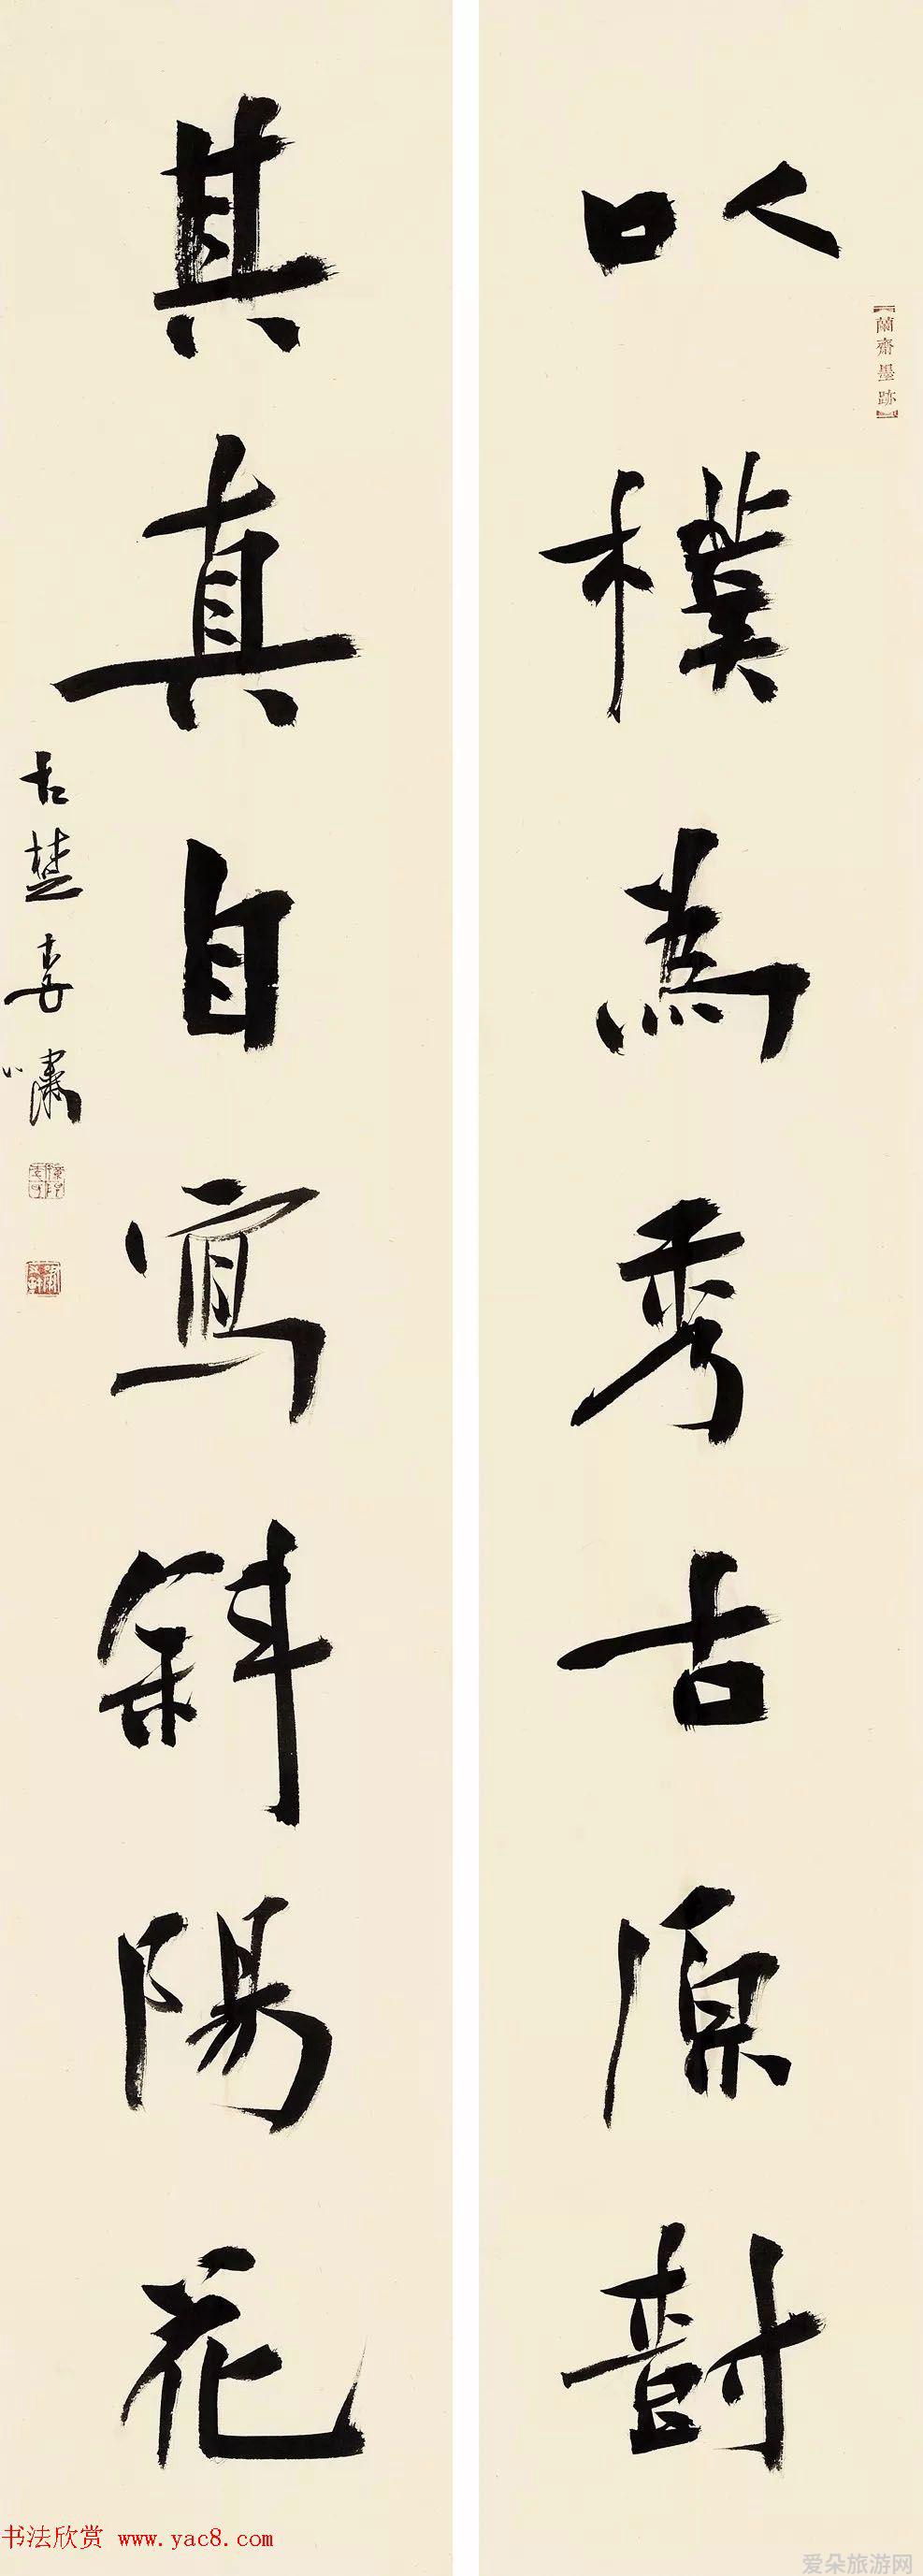 以樸為秀古原樹
【蘭齋墨跡】
其真自寫斜陽花
古楚李嘯
书法欣赏 www.yac8.com
爱朵旅游网